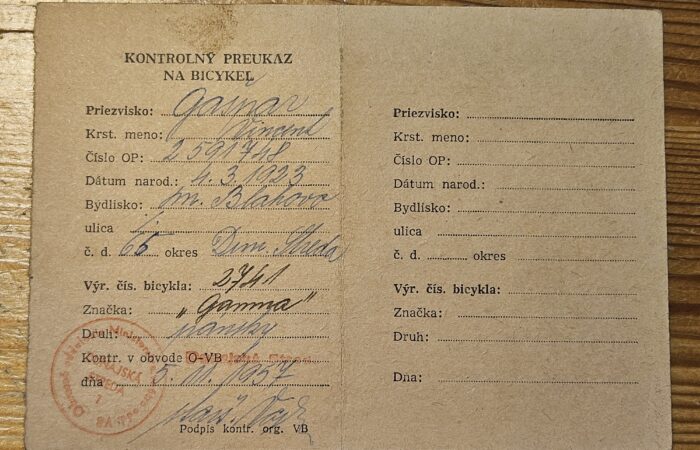 KONTROLNÝ PREUKAZ
NA BICYKEL
Priezvisko: Gašpar
Krst. meno: Vincent
Číslo OP: 2591748
Dátum narod.: 4.3.1923
Bydlisko: m. Blahova
ulica
č. d. 65 okres Dun. Streda
Výr. čís. bicykla: 2741
Značka: „Gamma"
Druh: pánsky
Kontr. v obvode O-VB
dňa 5. 11. 1957
Podpis kontr. org. VB
Priezvisko:
Krst. meno:
Číslo OP:
Dátum narod.:
Bydlisko:
ulica
č. d. okres
Výr. čís. bicykla:
Značka:
Druh:
Dna: